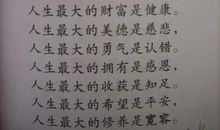 人生最大的财富是健康。
人生最大的美德是慈悲，
人生最大的勇气是认错。
人生最大的拥有是感恩，
人生最大的收获是知足。
人生最大的希望是平安，
人生最大的修养是宽容。